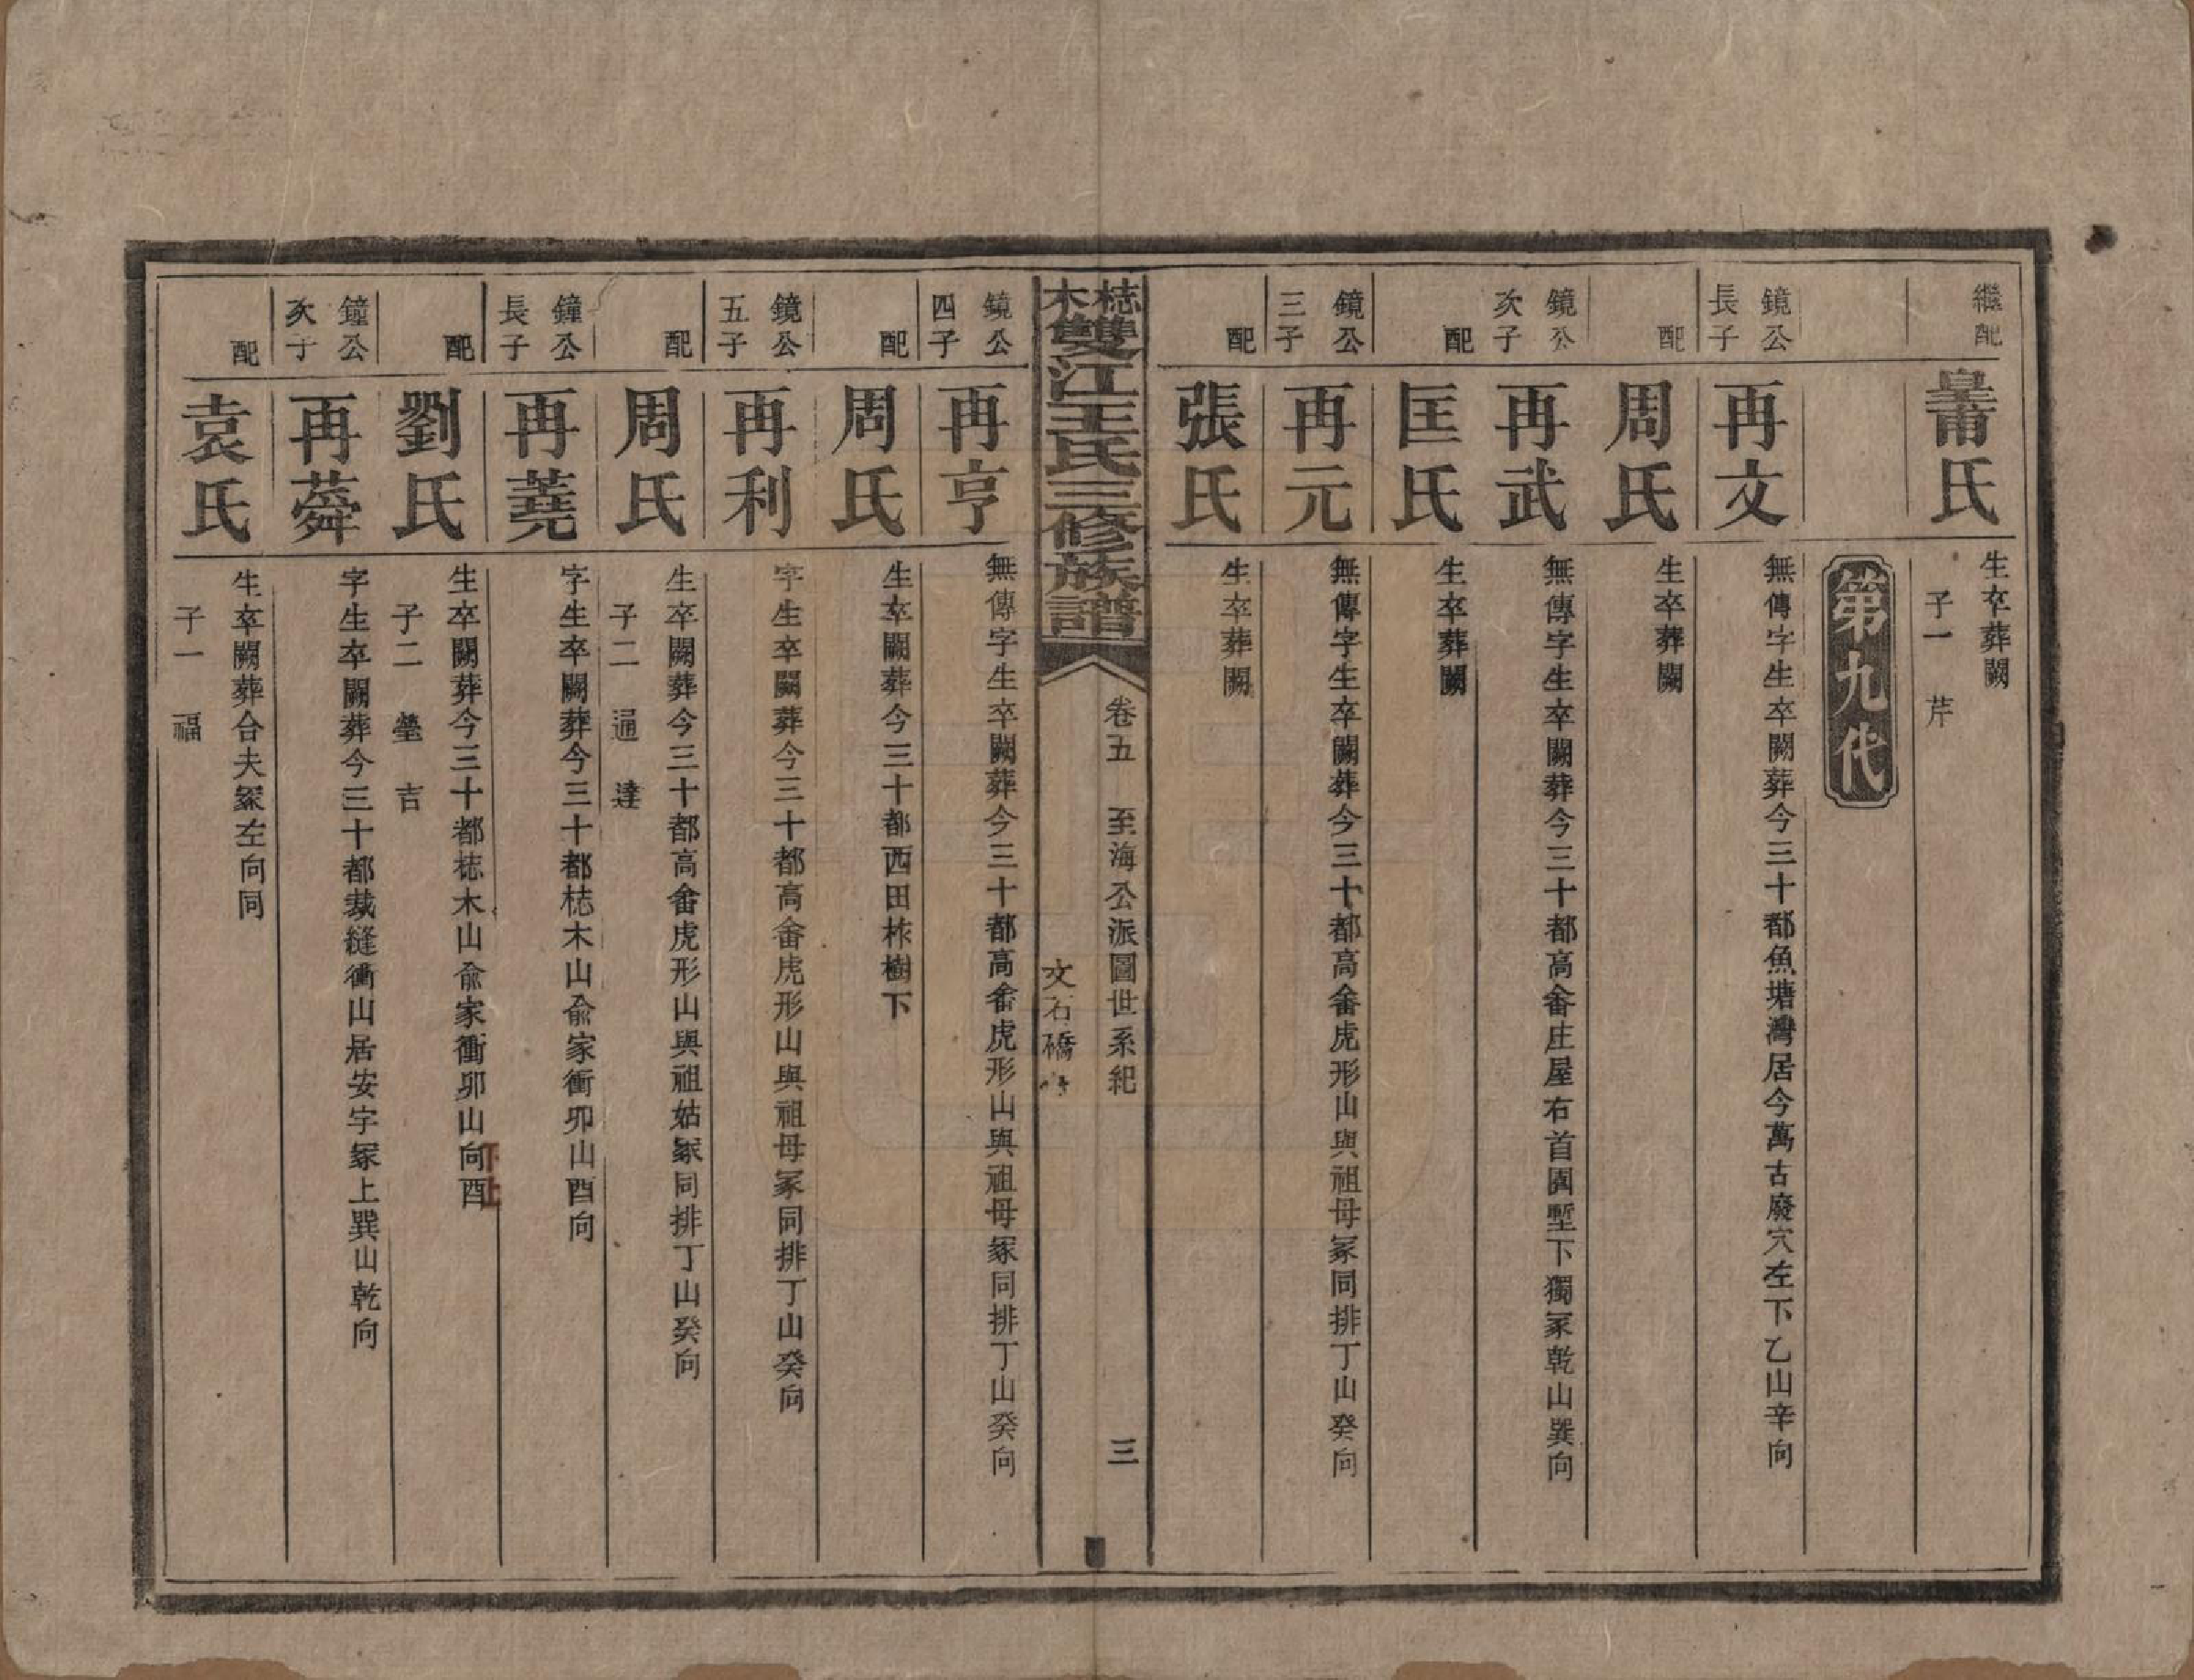 繼配
皇甫氏
生卒葬闕
子一　芹
第九代
鏡公長子
再文
無傳字生卒闕葬今三十都魚塘灣居今萬古廢穴左下乙山辛向
配
周氏
生卒葬闕
鏡公次子
再武
無傳字生卒闕葬今三十都高畲庄屋右首園塹下獨冢乾山巽向
配
匡氏
生卒葬闕
鏡公三子
再元
無傳字生卒闕葬今三十都高畲虎形山與祖母冢同排丁山癸向
配
張氏
生卒葬闕
梽木雙江王氏三修族譜
卷五　至海公派圖世系紀
文石礄
三
鏡公四子
再亨
無傳字生卒闕葬今三十都高畲虎形山與祖母冢同排丁山癸向
配
周氏
生卒闕葬今三十都西田柞樹下
鏡公五子
再利
字生卒闕葬今三十都高畲虎形山與祖母冢同排丁山癸向
配
周氏
生卒闕葬今三十都高畲虎形山與祖姑冢同排丁山癸向
子二　通　達
鐘公長子
再蕘
字生卒闕葬今三十都梽木山俞家衝卯山酉向
配
劉氏
生卒闕葬今三十都梽木山俞家衝卯山向酉
下上
子二　瑩　吉
鐘公次子
再蕣
字生卒闕葬今三十都裁縫衝山居安字冢上巽山乾向
配
袁氏
生卒闕葬合夫冢左向同
子一　福